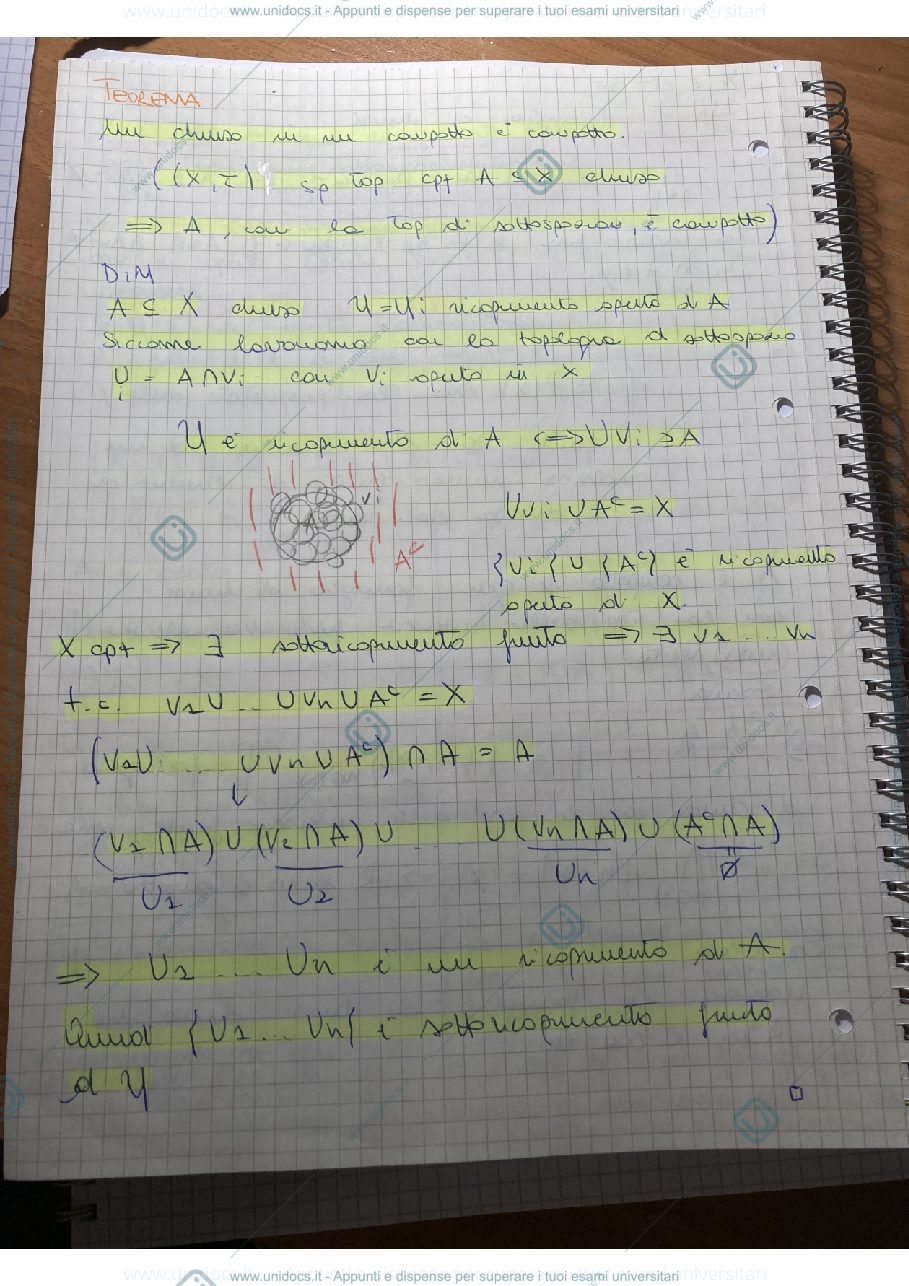 www.unidocs.it - Appunti e dispense per superare i tuoi esami universitari
TEOREMA
Un chiuso in un compatto è compatto.
((X, τ) sp top cpt A ⊆ X chiuso
=> A, con la top di sottospazio, è compatto)
DIM
A ⊆ X chiuso U = Ui ricoprimento aperto di A
Siccome lavoriamo con la topologia di sottospazio
Ui = A ∩ Vi con Vi aperto in X
U è ricoprimento di A <=> ∪ Vi ⊇ A
Vi
A
A^c
∪ Vi ∪ A^c = X
{Vi} ∪ {A^c} è ricoprimento
aperto di X.
X cpt => ∃ sottoricoprimento finito => ∃ V1 ... Vn
t.c. V1 ∪ ... ∪ Vn ∪ A^c = X
(V1 ∪ ... ∪ Vn ∪ A^c) ∩ A = A
↓
(V1 ∩ A) ∪ (V2 ∩ A) ∪ ... ∪ (Vn ∩ A) ∪ (A^c ∩ A)
U1 U2 Un = ∅
=> U1 ... Un è un ricoprimento di A.
Quindi {U1 ... Un} è sottoricoprimento finito
di U
□
www.unidocs.it - Appunti e dispense per superare i tuoi esami universitari